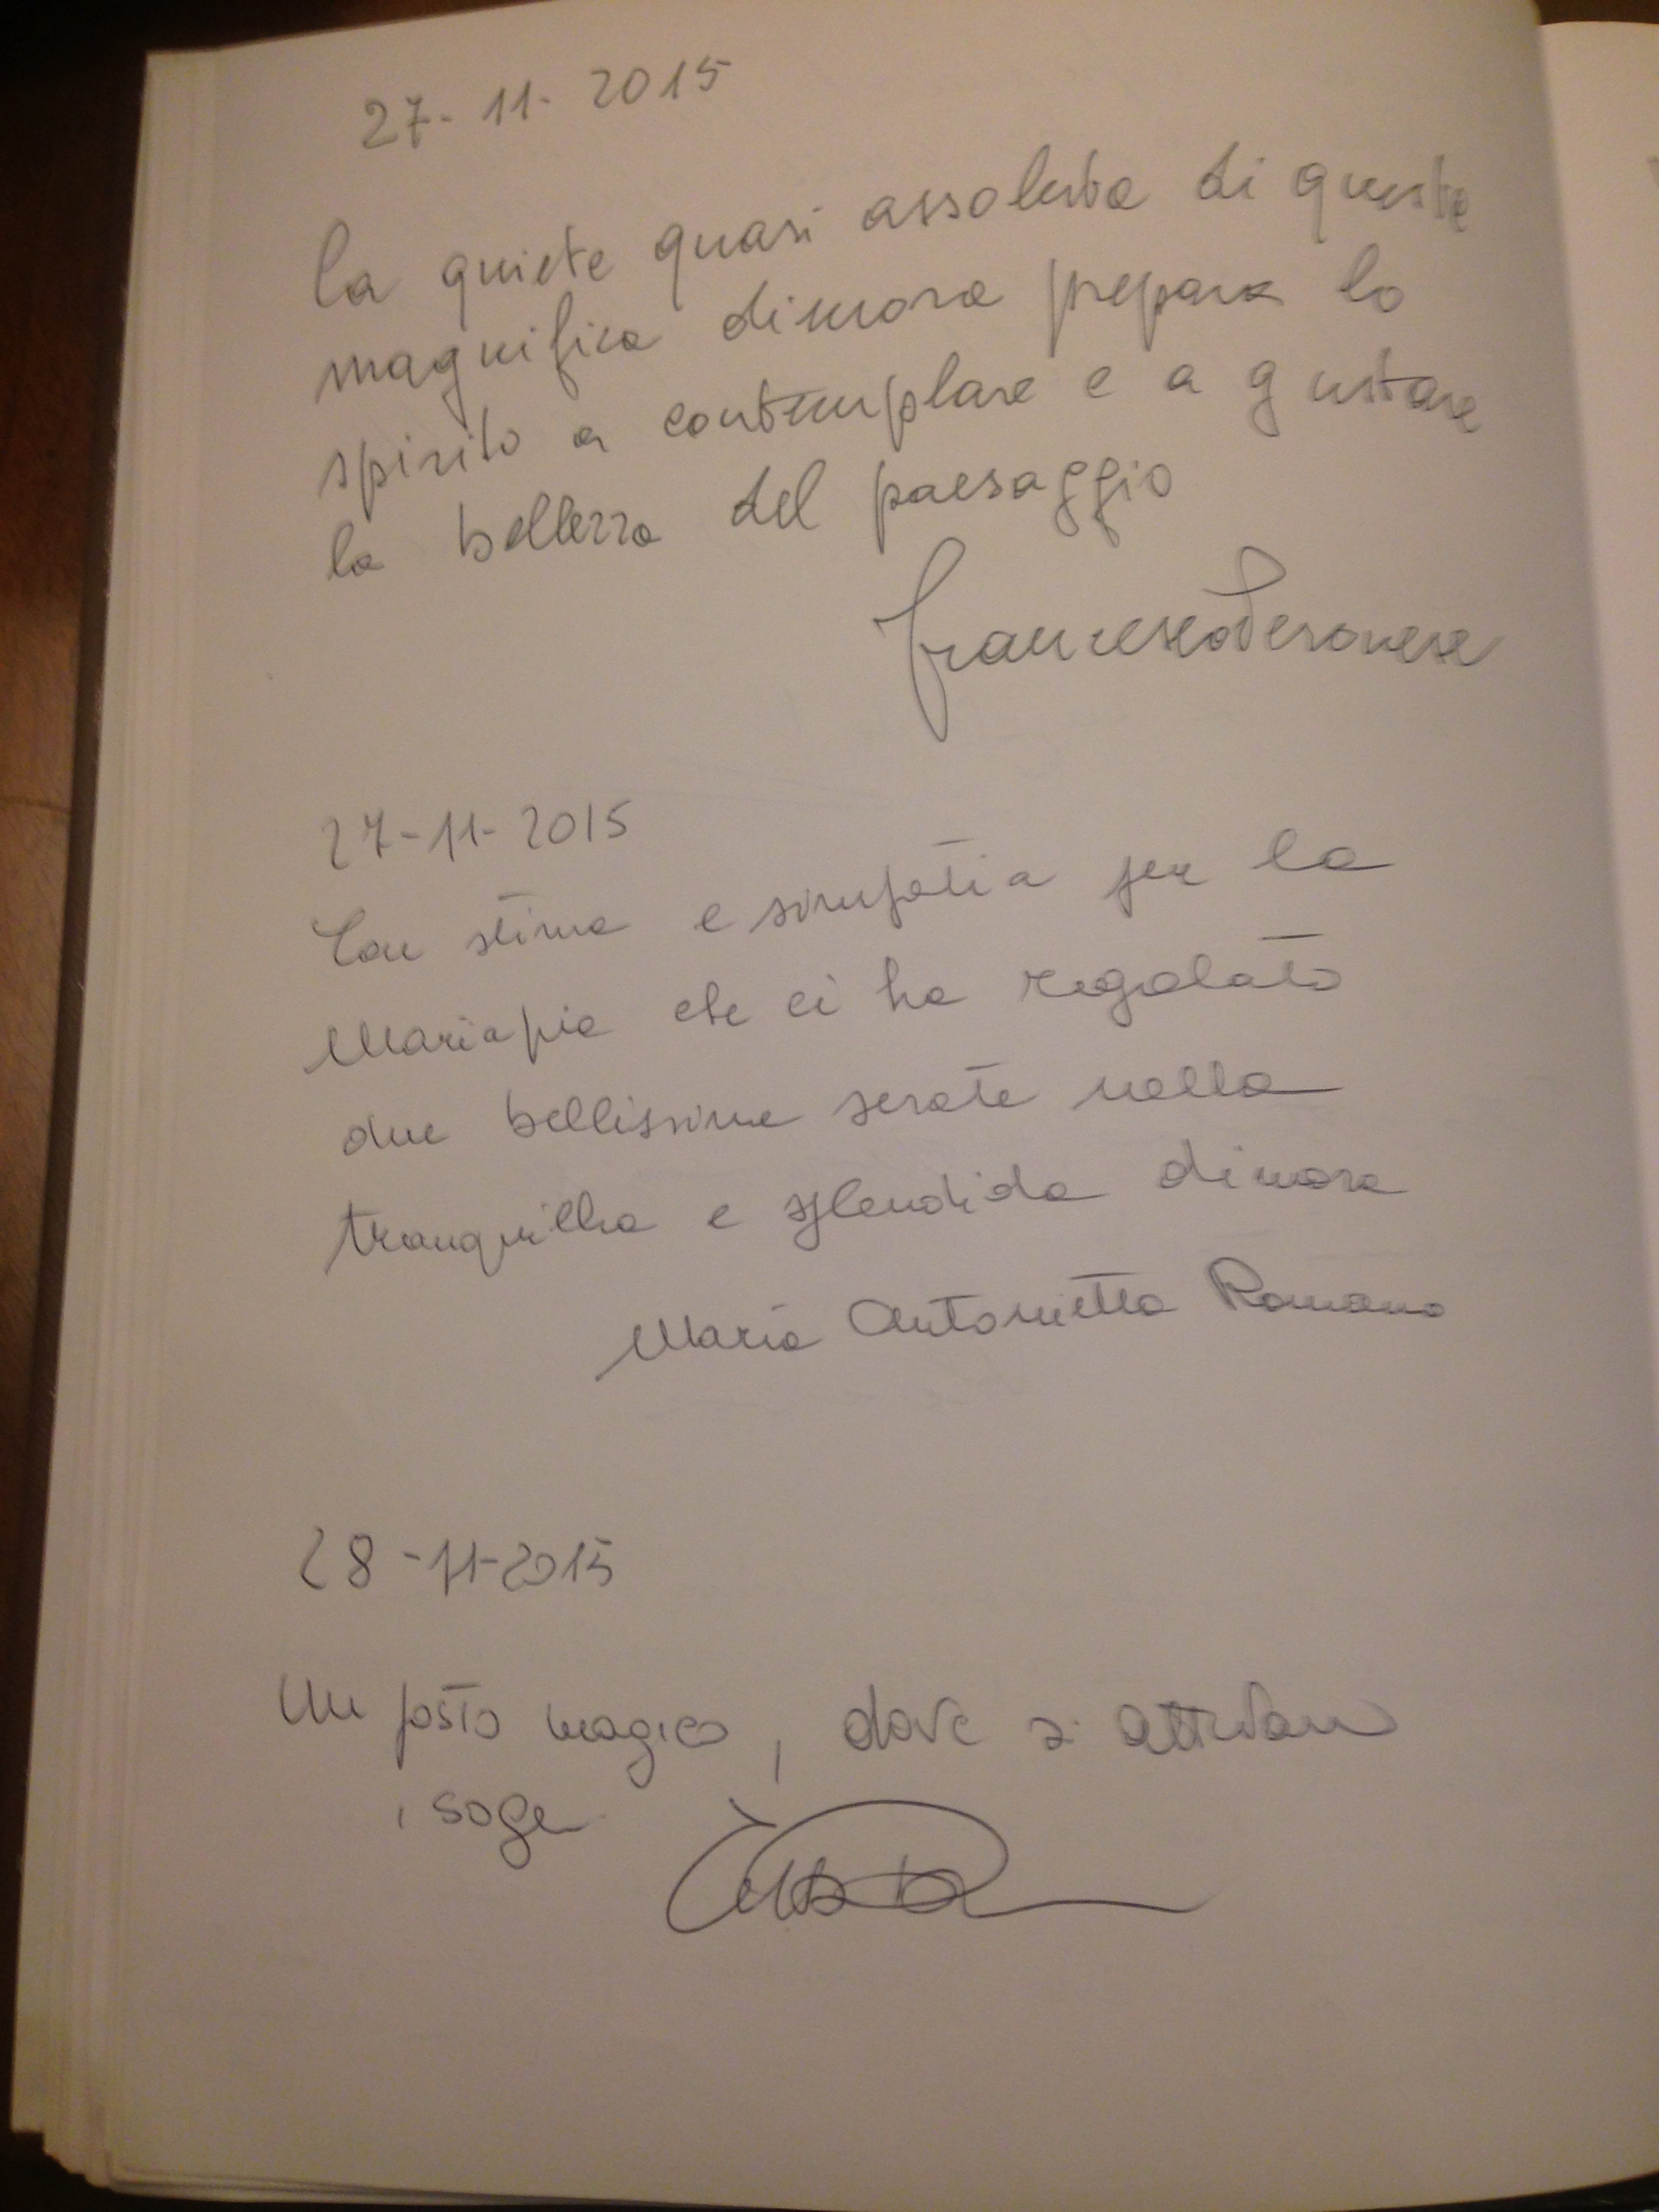 27-11-2015
la quiete quasi assoluta di questa
magnifica dimora prepara lo
spirito a contemplare e a gustare
la bellezza del paesaggio
Francesco Veronese
27-11-2015
Con stima e simpatia per la
Mariapia che ci ha regalato
due bellissime serate nella
tranquilla e splendida dimora
Maria Antonietta Romano
28-11-2015
Un posto magico, dove si
i